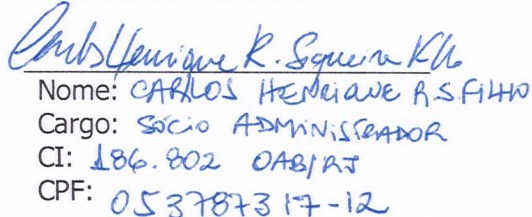 Carlos Henrique R. Siqueira Filho
Nome: CARLOS HENRIQUE R.S.FILHO
Cargo: SÓCIO ADMINISTRADOR
CI: 186.802 OAB/RJ
CPF: 053787317-12